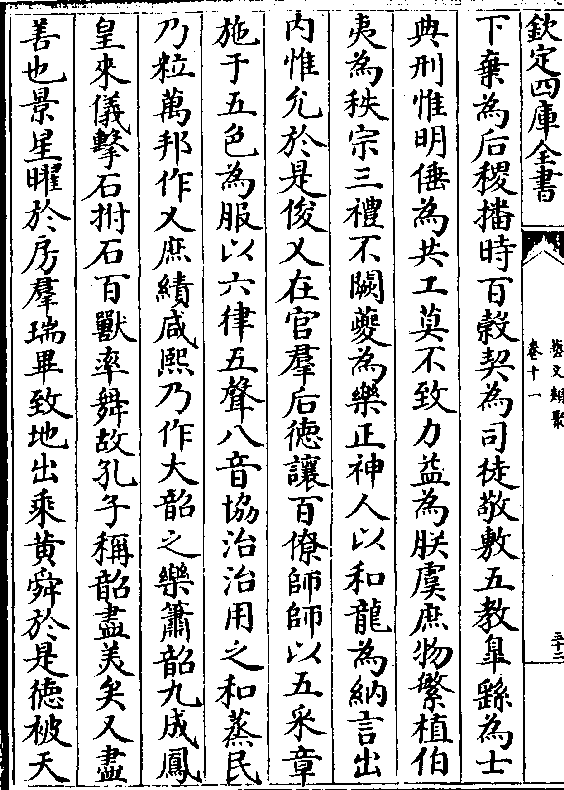 欽定四庫全書
藝文類聚
卷十一
三十三
下棄為后稷播時百穀契為司徒敬敷五教臯繇為士
典刑惟明倕為共工莫不致力益為朕虞庶物繁植伯
夷為秩宗三禮不闕夔為樂正神人以和龍為納言出
内惟允於是俊乂在官羣后徳讓百僚師師以五采章
施于五色為服以六律五聲八音協治治用之和蒸民
乃粒萬邦作乂庶績咸熙乃作大韶之樂簫韶九成鳳
皇來儀擊石拊石百獸率舞故孔子稱韶盡美矣又盡
善也景星曜於房羣瑞畢致地出乘黄舜於是徳被天